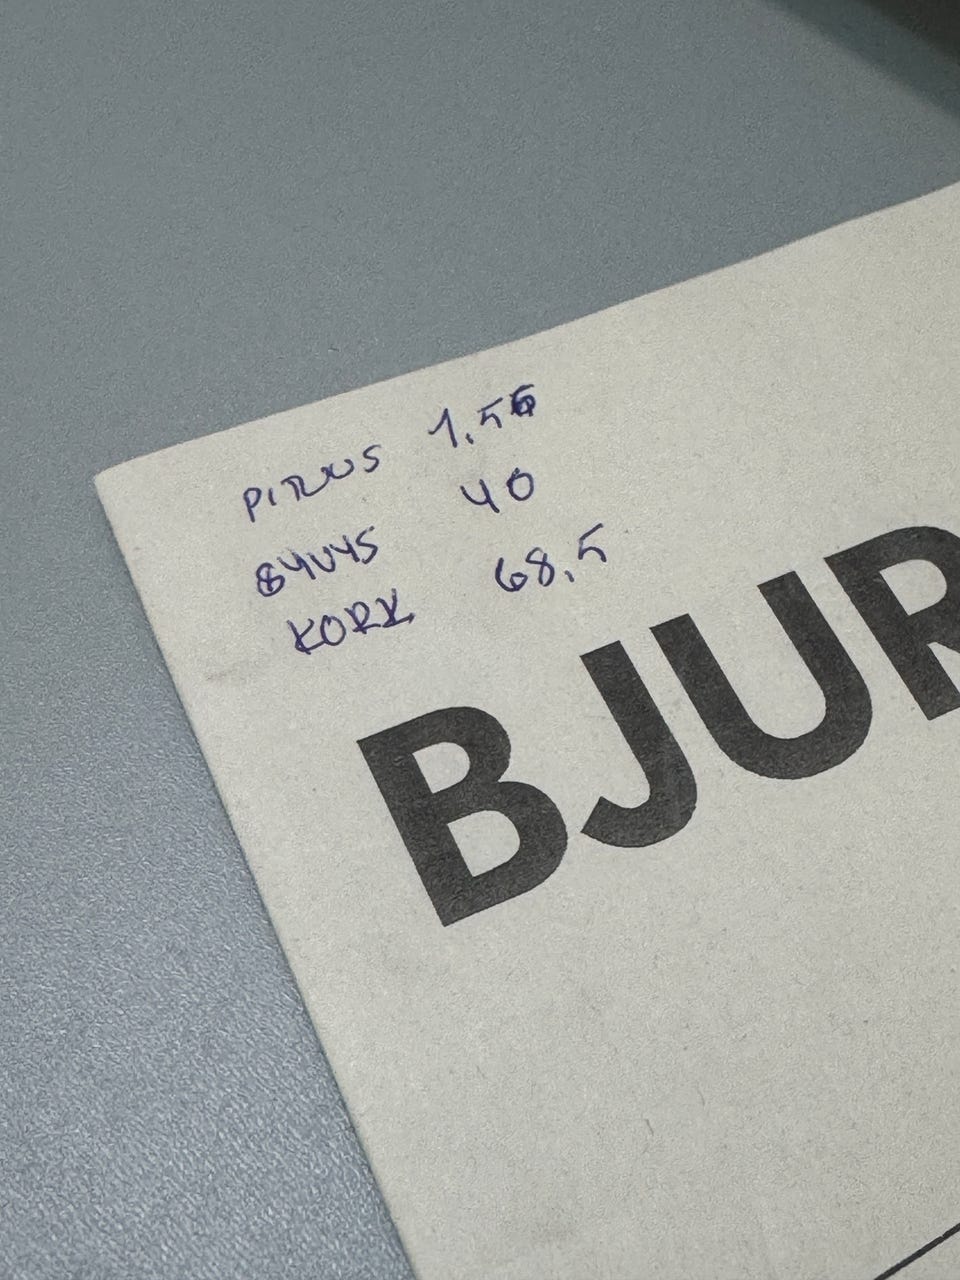 PITUUS 1,56
SYVYYS 40
KORK 68,5
BJUR